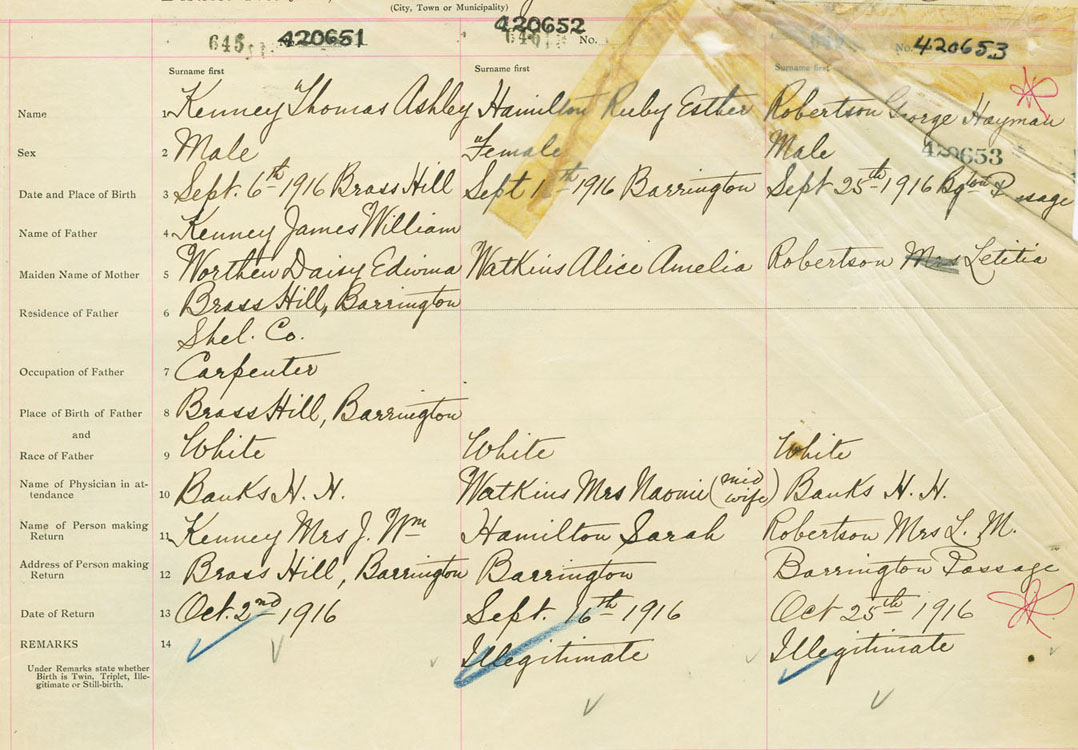 (City, Town or Municipality)
645 420651 420652 No. No. 420653
Surname first Surname first Surname first
Name 1 Kenney Thomas Ashley Hamilton Ruby Esther Robertson George Hayman
Sex 2 Male Female Male
420653
Date and Place of Birth 3 Sept. 6th 1916 Brass Hill Sept 1916 Barrington Sept 25th 1916
Name of Father 4 Kenney James William
Maiden Name of Mother 5 Worthen Daisy Edwina Watkins Alice Amelia Robertson Mrs Letitia
Residence of Father 6 Brass Hill, Barrington
Shel. Co.
Occupation of Father 7 Carpenter
Place of Birth of Father 8 Brass Hill, Barrington
and
Race of Father 9 White White White
Name of Physician in at-
tendance 10 Banks H. H. Watkins Mrs Naomi (mid
wife) Banks H. H.
Name of Person making
Return 11 Kenney Mrs J. Wm Hamilton Sarah Robertson Mrs L. M.
Address of Person making
Return 12 Brass Hill, Barrington Barrington Barrington Passage
Date of Return 13 Oct. 2nd 1916 Sept. 16th 1916 Oct 25th 1916
REMARKS 14 Illegitimate Illegitimate
Under Remarks state whether
Birth is Twin, Triplet, Ille-
gitimate or Still-birth.